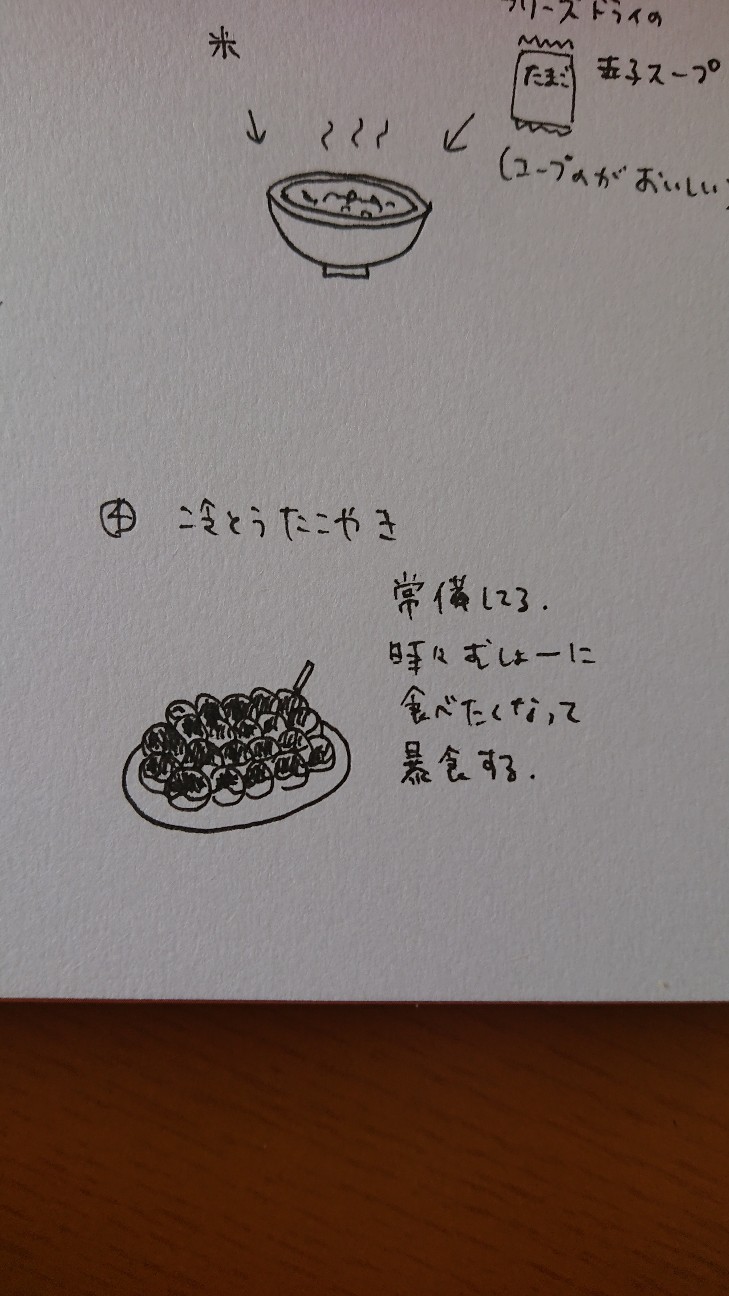 フリーズドライの
米
たまご
玉子スープ
(コープのがおいしい)
④ 冷とうたこやき
常備してる.
時々むしょーに
食べたくなって
暴食する.